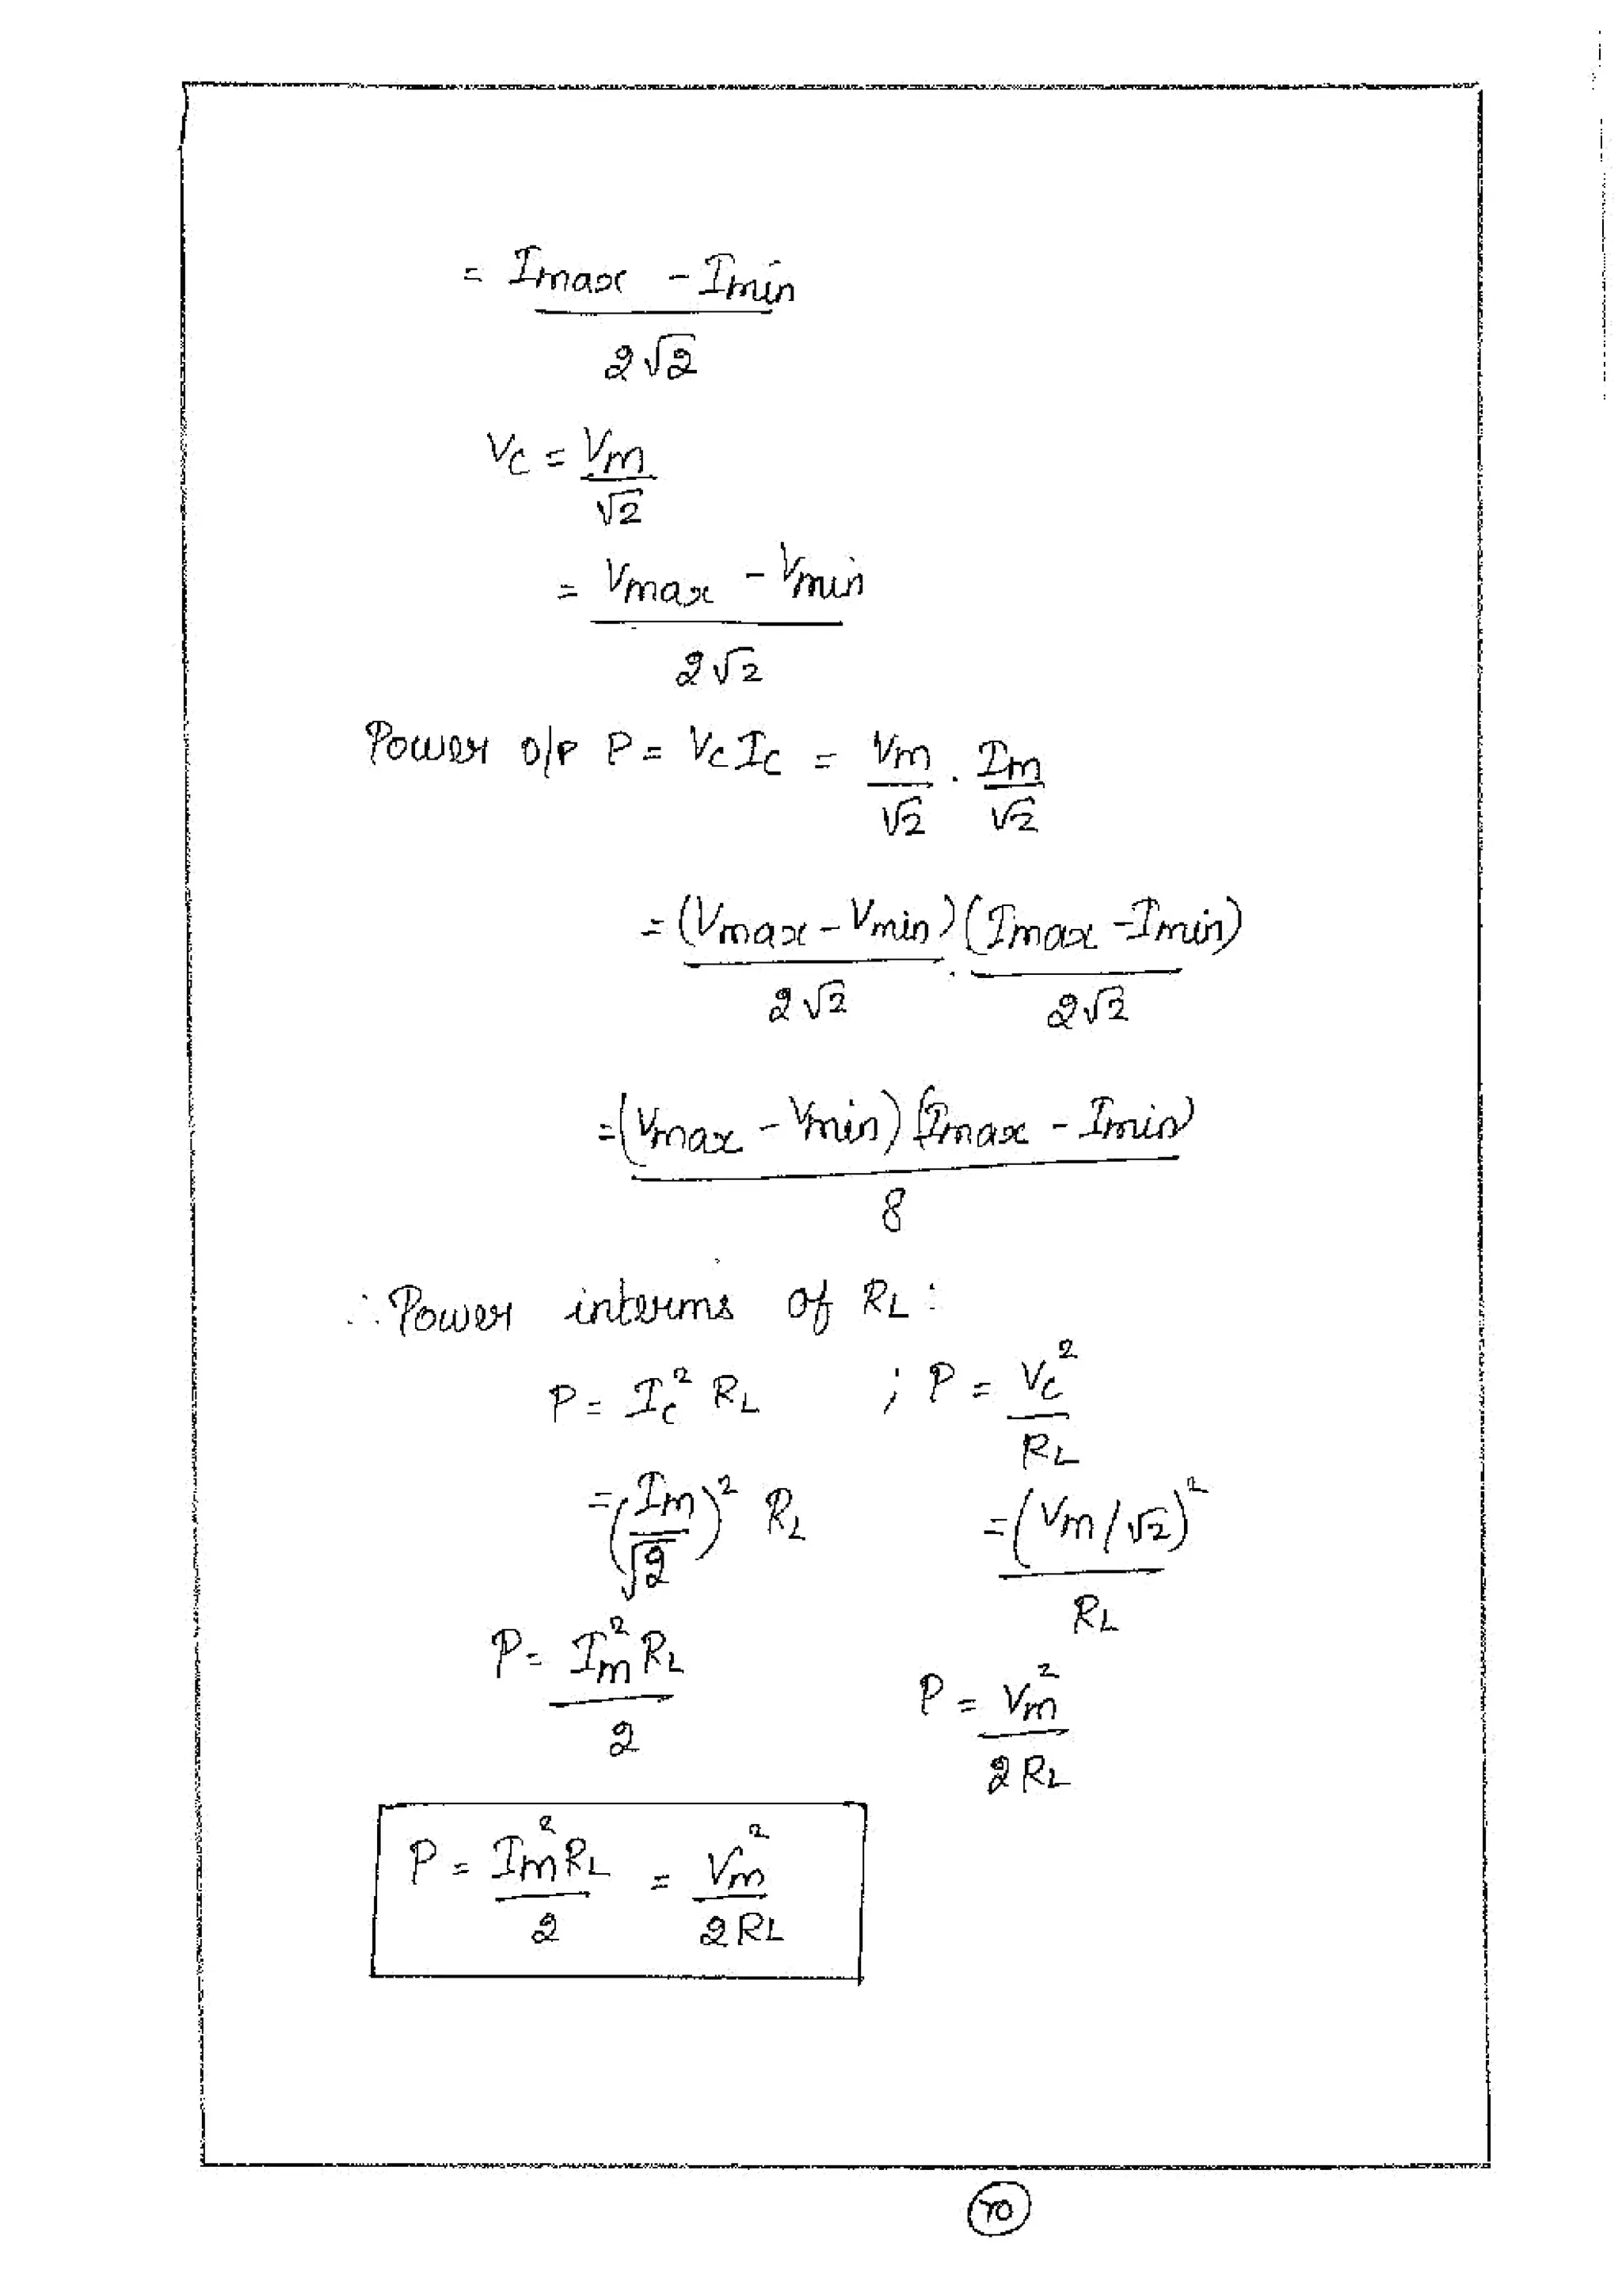 = Imax - Imin
2√2
Vc = Vm
√2
= Vmax - Vmin
2√2
Power o/p P = Vc Ic = Vm . Im
√2 √2
= (Vmax - Vmin) . (Imax - Imin)
2√2 2√2
= (Vmax - Vmin) (Imax - Imin)
8
∴ Power interms of RL :
P = Ic² RL ; P = Vc²
RL
= (Im/√2)² RL = (Vm/√2)²
RL
P = Im² RL
2
P = Vm²
2 RL
P = Im² RL = Vm²
2 2RL
70